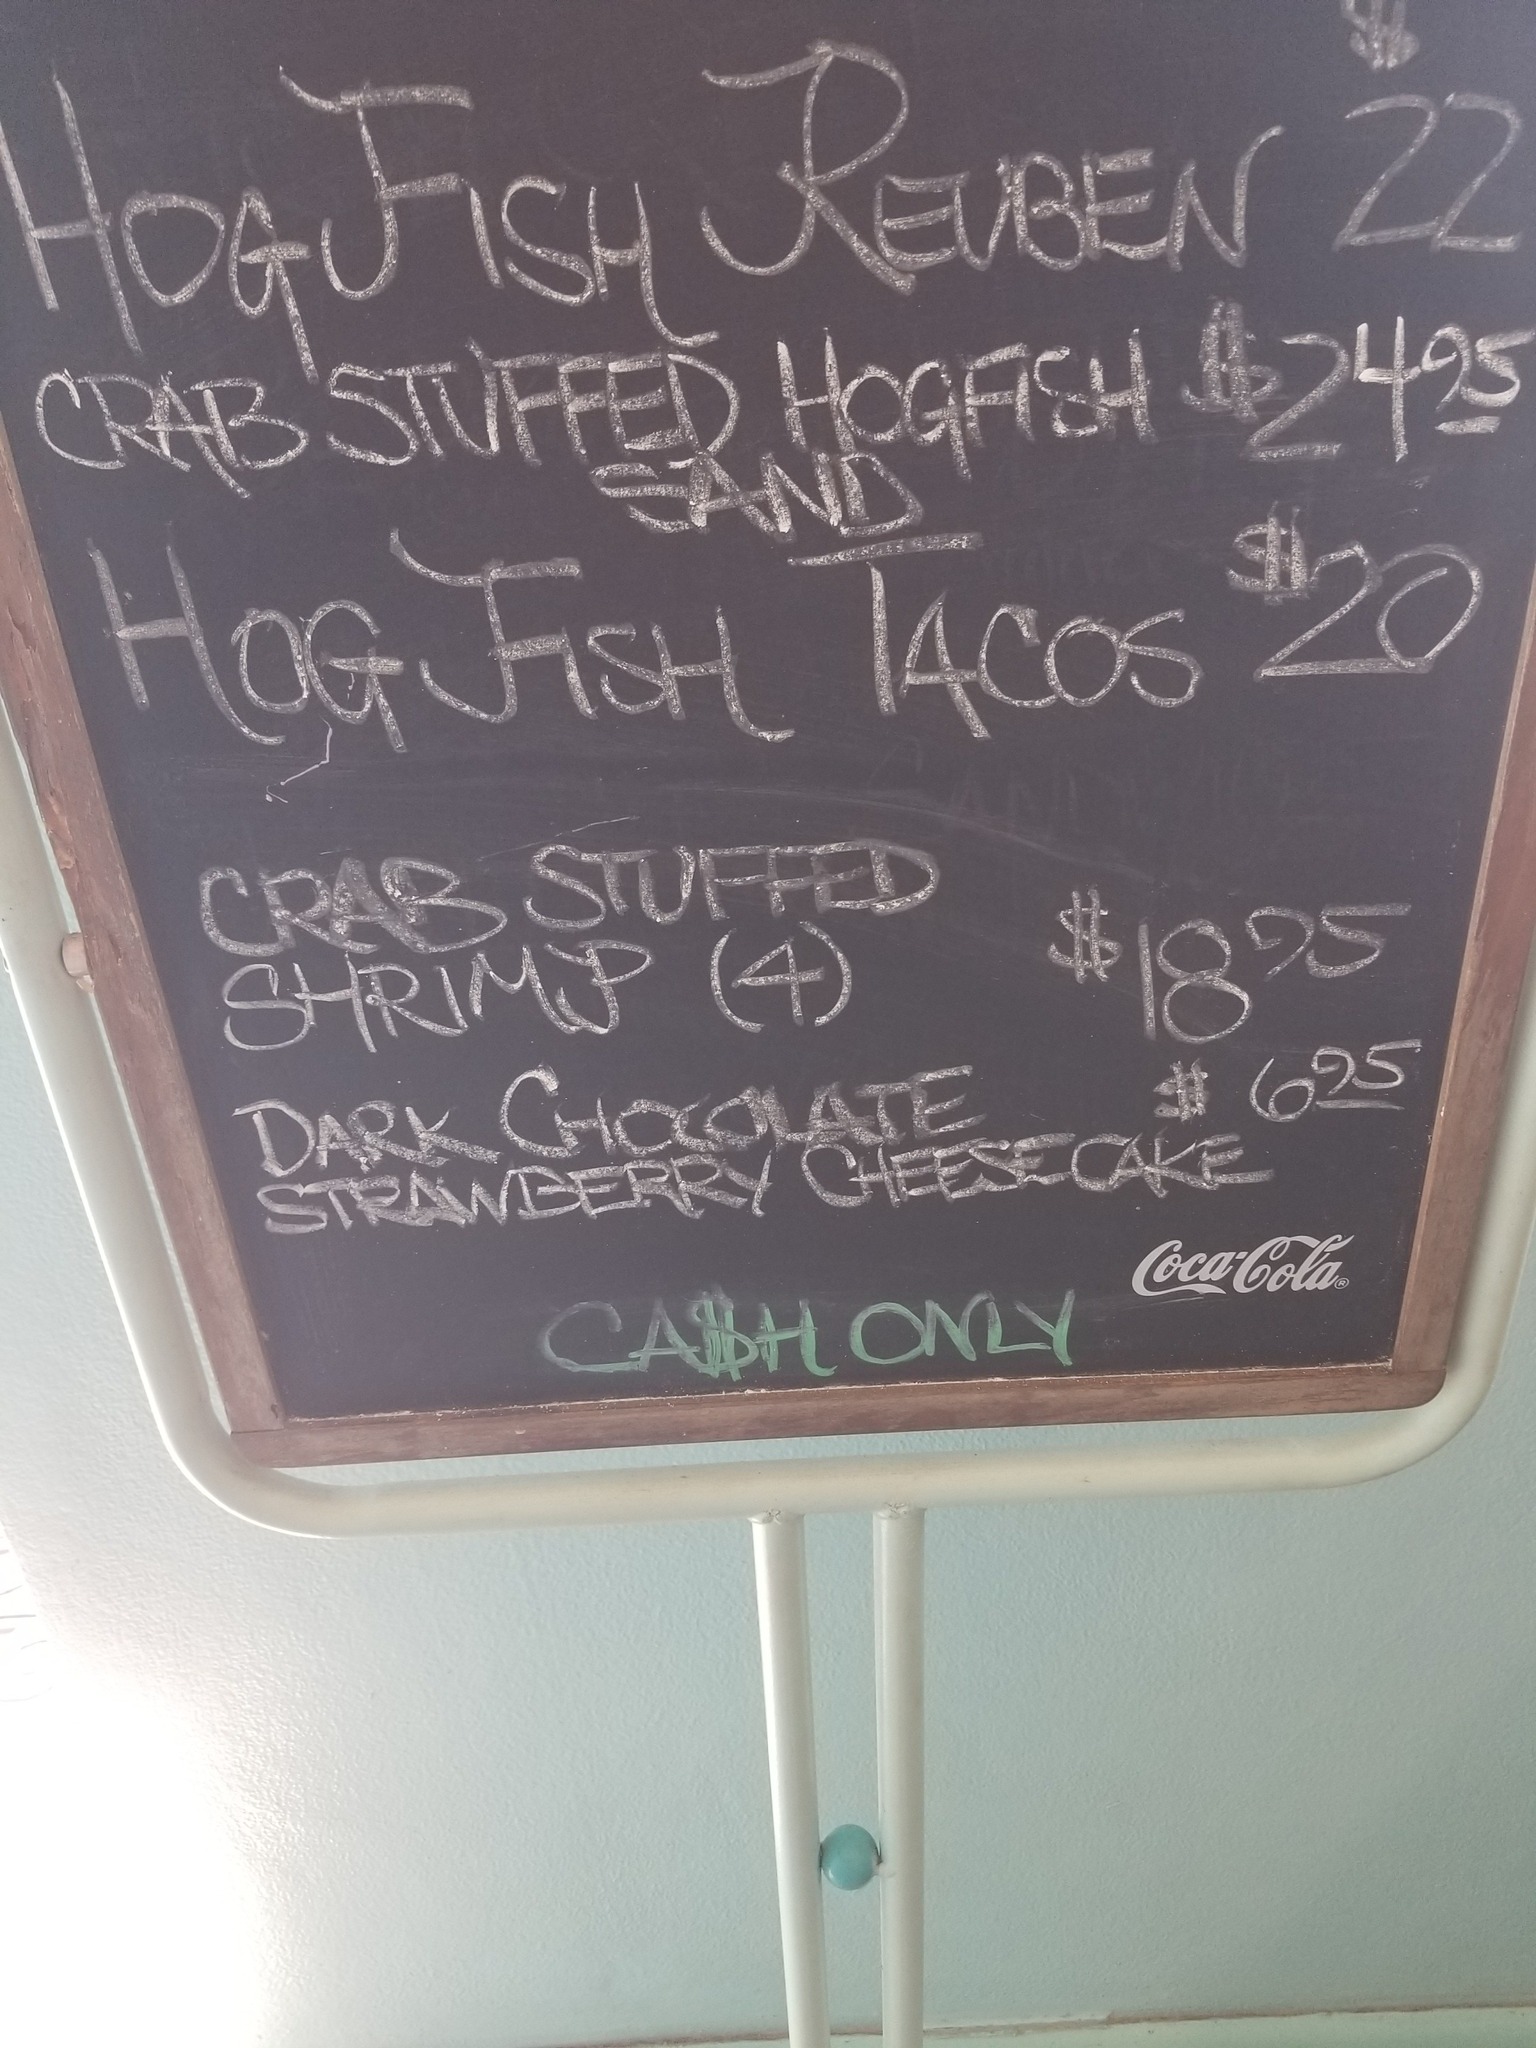 HOGFISH REUBEN $22
CRAB STUFFED HOGFISH $24.95
SAND
HOGFISH TACOS $20
CRAB STUFFED
SHRIMP (4) $18 95
DARK CHOCOLATE $ 6 95
STRAWBERRY CHEESECAKE
Coca-Cola®
CA$H ONLY